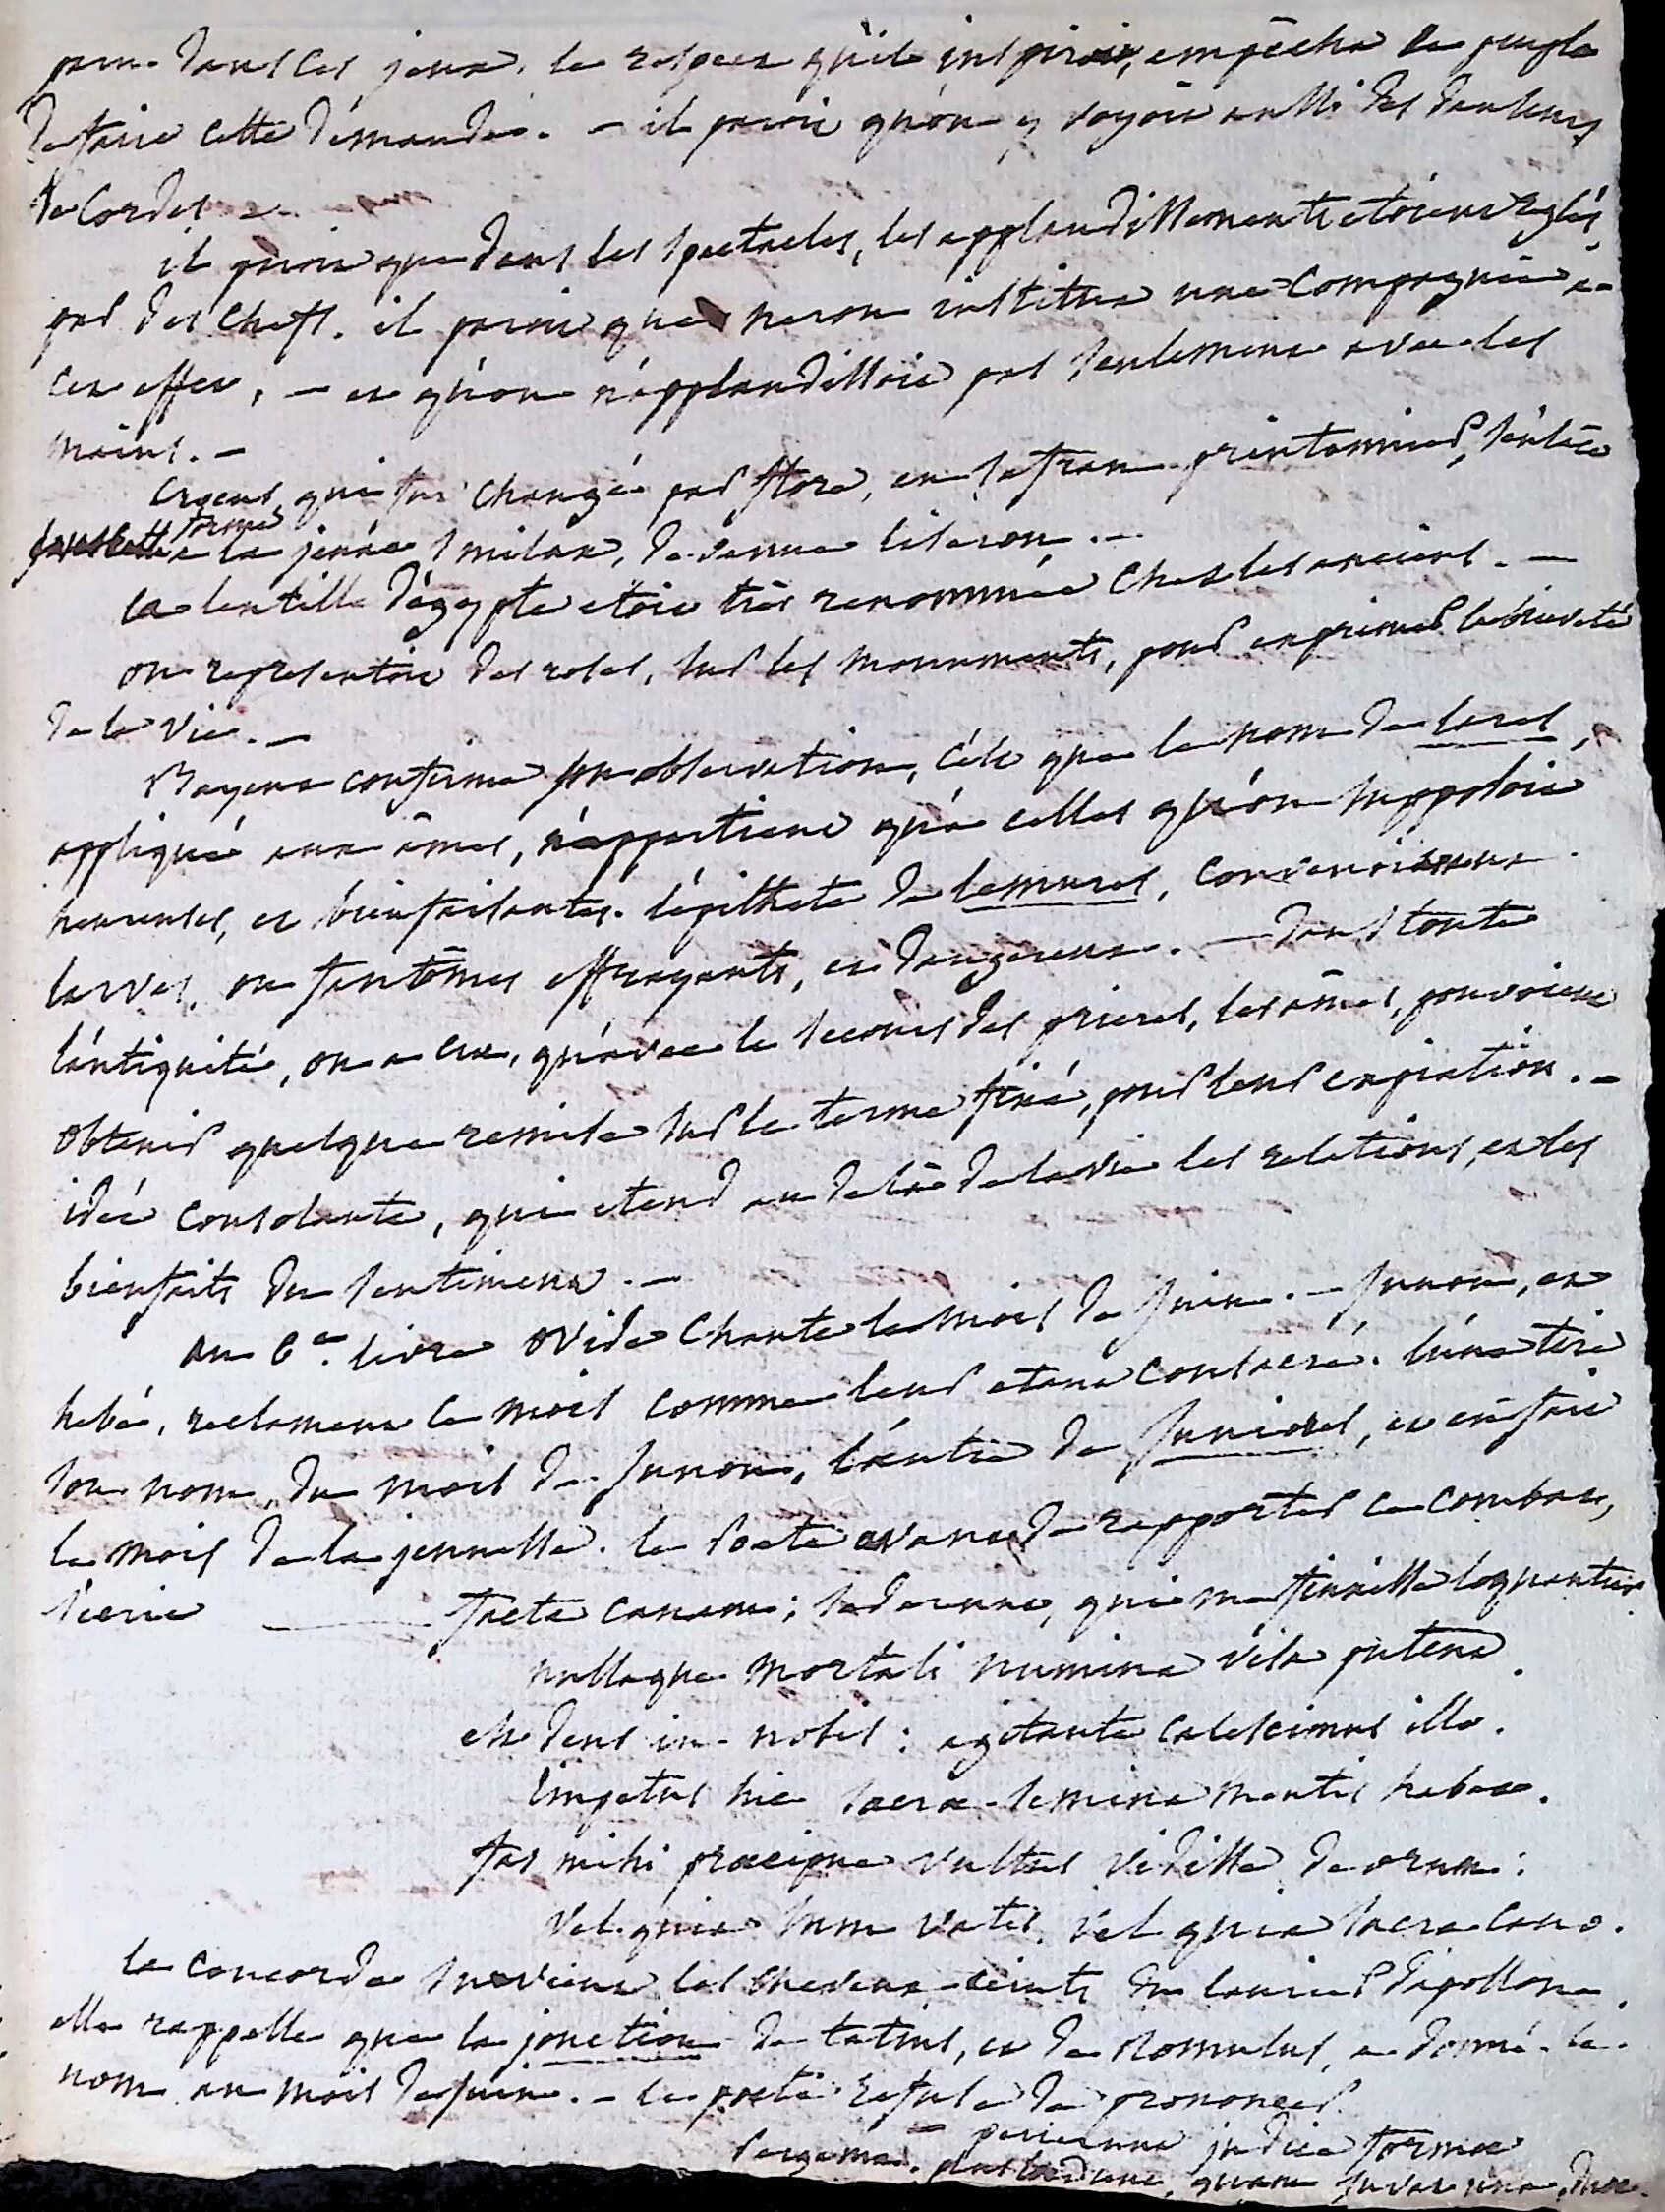 dans ces jeux, le respect qu'il inspiroit, empêcha le peuple
de faire cette demande. - il paroit qu'on y voyoit aussi des danseurs
de Cordes -.
il paroit que dans les spectacles, les applaudissements etoient reglés
par des chefs. il paroit que neron institua une Compagnie à
cet effet, - et qu'on n'applaudissoit pas seulement avec les
mains. -
Crocus, qui fut changé par flore, en safran printannier,
forme la jeune smilax, devenue liseron. -
la lentille d'égypte etoit très renommée chez les anciens. -
on representoit des roses, sur les monuments, pour exprimer la brieveté
de la vie. -
Bayeux confirme une observation, c'est que le nom de lares,
appliqué aux âmes, n'appartient qu'à celles qu'on supposoit
heureuses, et bienfaisantes. l'épithete de lemures, convenoit aux
larves, ou fantômes effrayants, et dangereux. - dans toute
l'antiquité, on a cru, qu'avec le secours des prieres, les âmes, pouvoient
obtenir quelque remise sur le terme fixé, pour leur expiation. -
idée consolante, qui etend au delà de la vie les relations, et les
bienfaits du sentiment. -
au 6e. livre ovide chante le mois de Juin. - Junon, et
hebé, reclament ce mois comme leur etant consacré. l'une tire
son nom, du mois de Junon, l'autre de Juniores, et en fait
le mois de la jeunesse. le Poete avant de rapporter ce combat,
s'ecrie ——— facta canam; sed erunt, qui me finxisse loquantur
nullaque mortali numina visa putent.
est deus in nobis: agitante calescimus illo.
impetus hic sacrae semina mentis habet.
fas mihi praecipue vultus vidisse deorum:
vel quia sum vates, vel quia sacra cano.
la concorde survient les cheveux ceints du laurier d'apollon.
elle rappelle que la jonction de tatius, et de Romulus, a donné le
nom au mois de Juin. - le poete refuse de prononcer
perierunt judice formae
Pergama. plus laedunt, quam juvat una, duae.